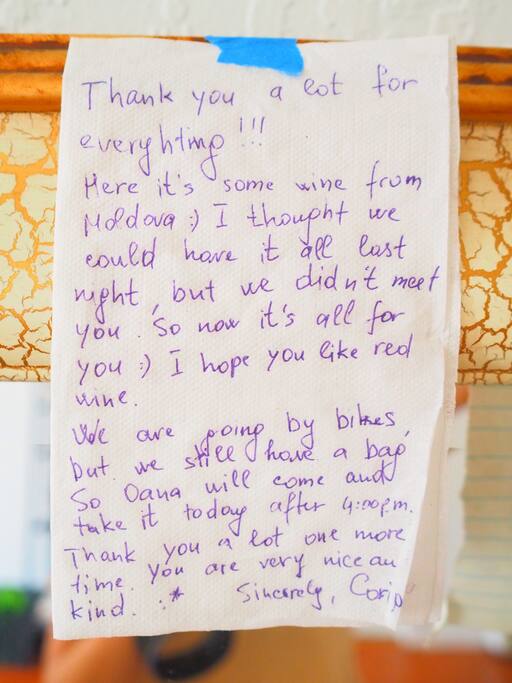 Thank you a lot for
everyhting!!!
Here it's some wine from
Moldova :) I thought we
could have it all last
night, but we didn't meet
you. So now it's all for
you :) I hope you like red
wine.
We are going by bikes,
but we still have a bag
So Oana will come and
take it today after 4:00p.m.
Thank you a lot one more
time. You are very nice an
kind. :* Sincerely,